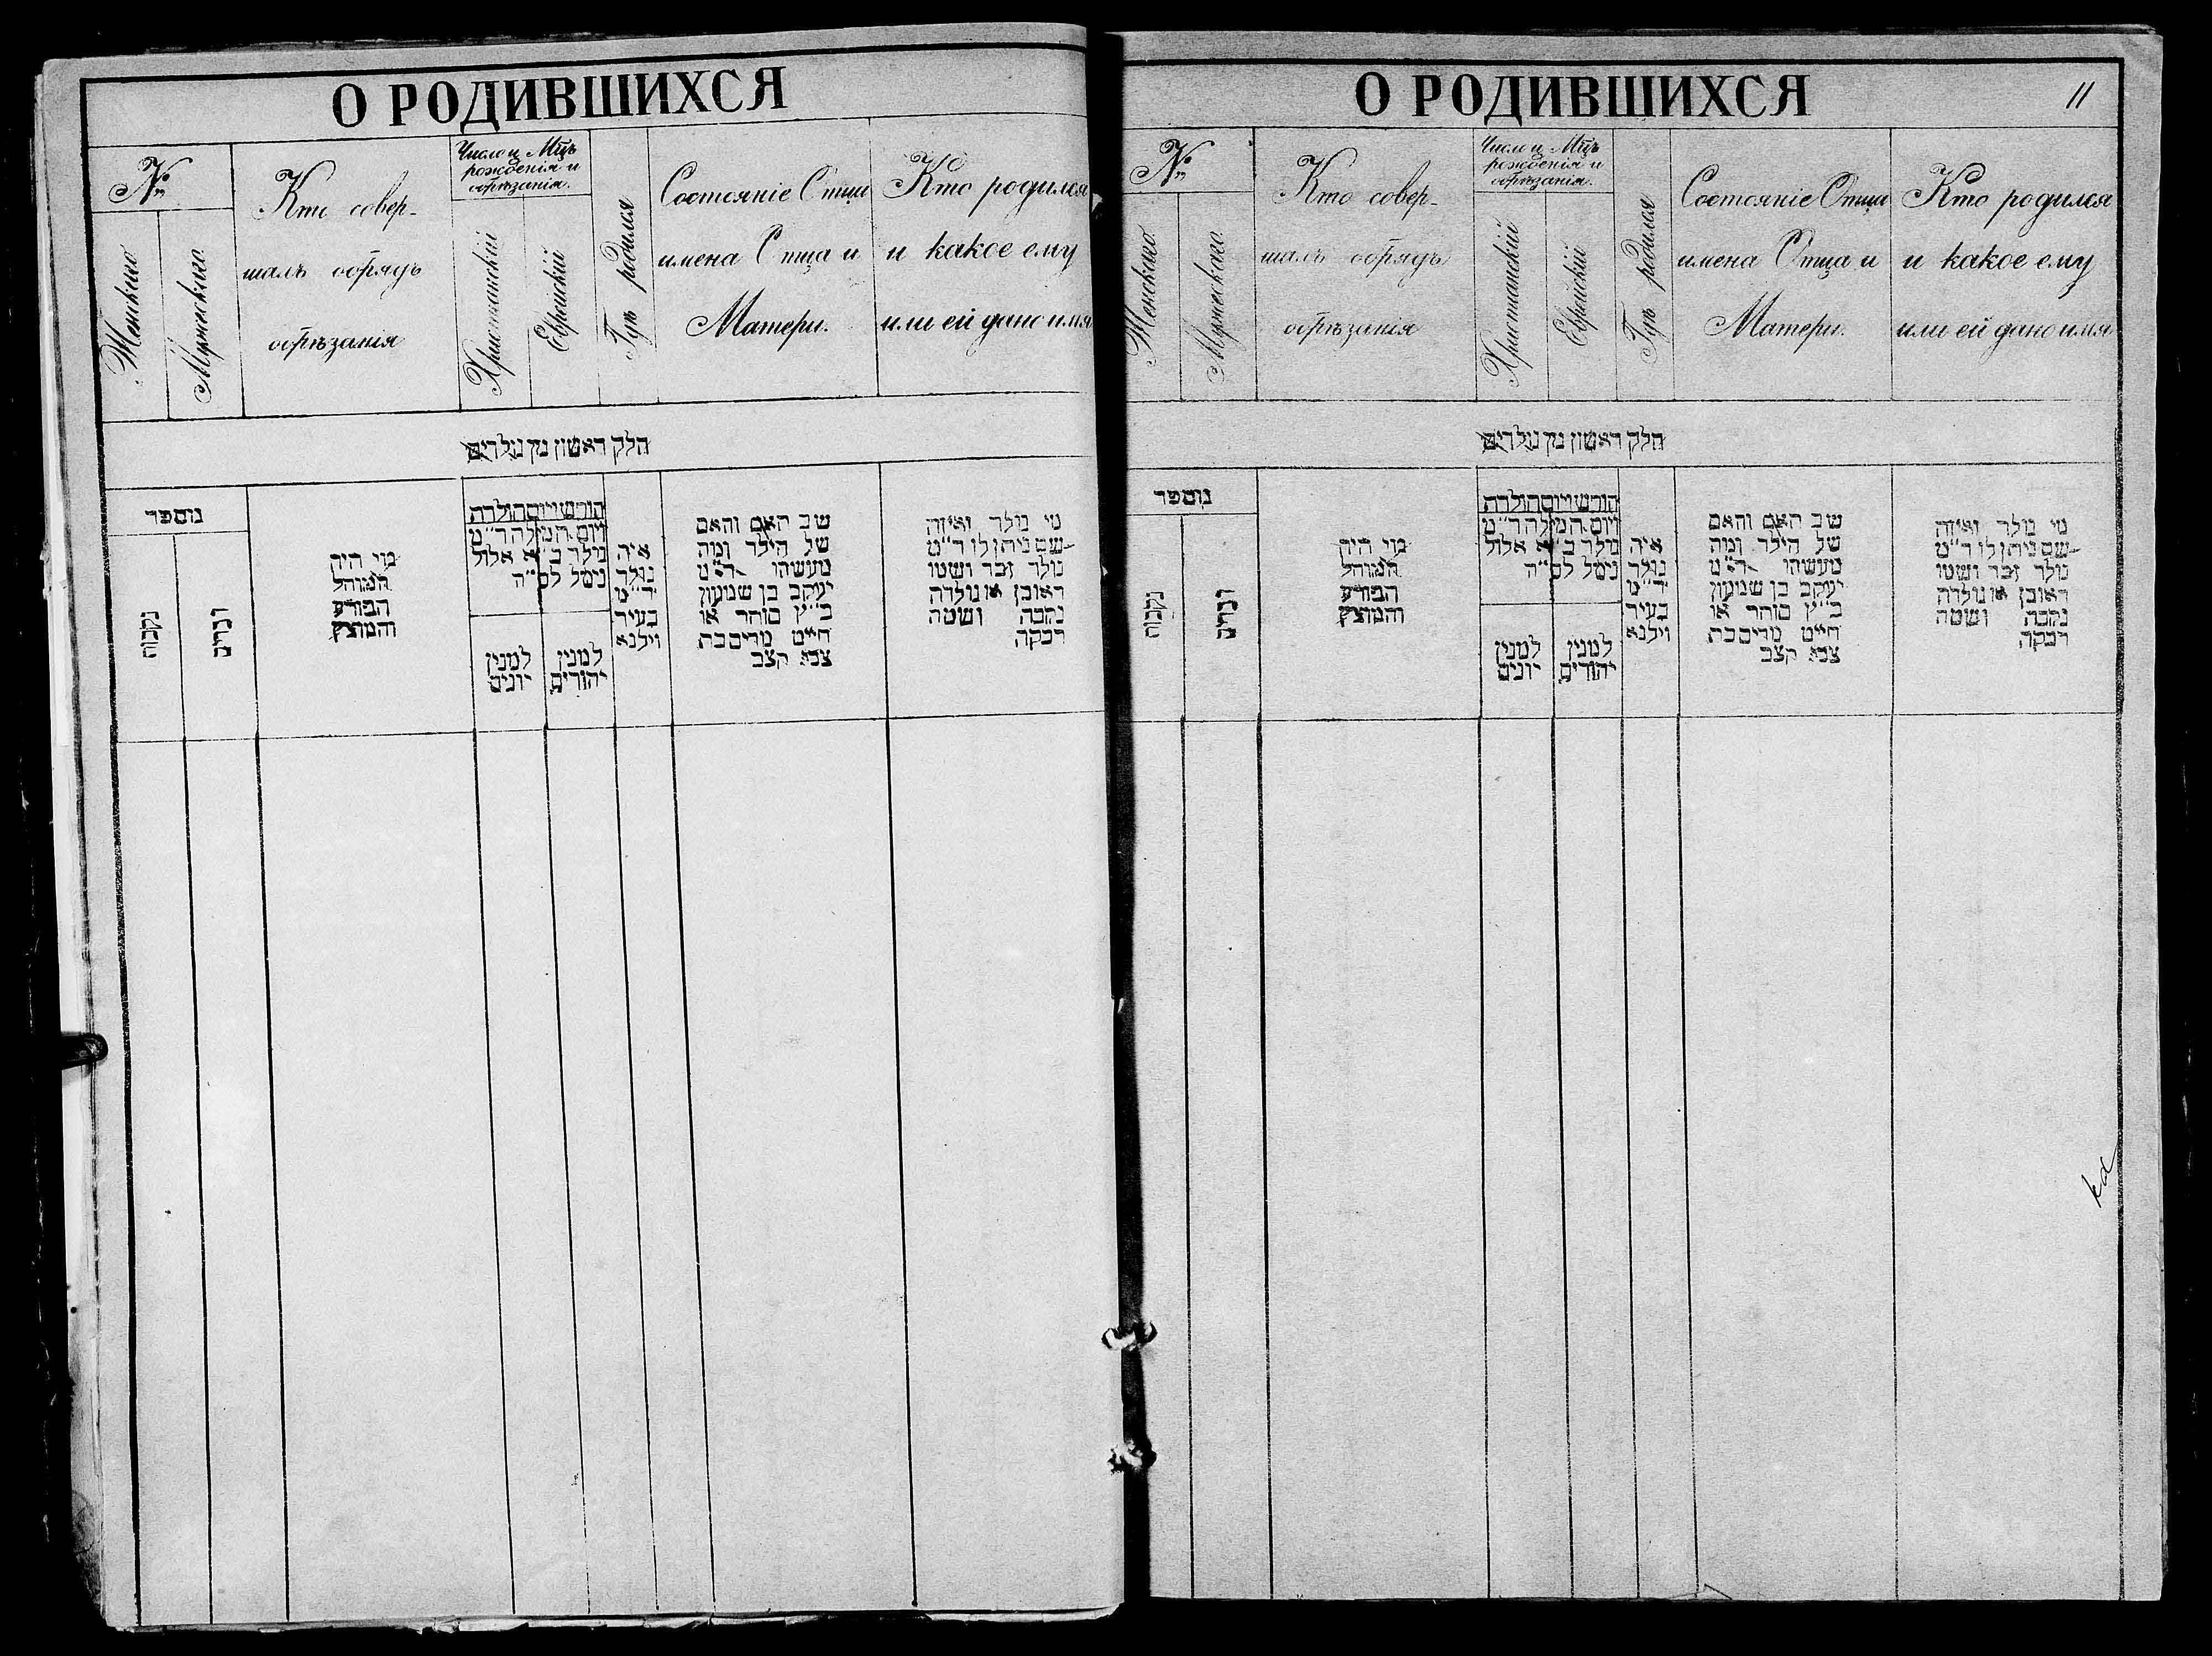 О РОДИВШИХСЯ
№
Женскаго
Мужескаго
Кто совер-
шалъ обрядъ
обрѣзанія
Число и Мцъ
рожденія и
обрѣзанія.
Христіанскій
Еврейскій
Гдѣ родился
Состояніе Отца
имена Отца и
Матери.
Кто родился
и какое ему
или ей дано имя
חלק ראשון מן נולדים
מספר
נקבות
זכרים
מי היה
המוהל
הפורע
והמוצץ
חודש ויום הולדה
ויום המילה ד״מ
נולד ב״א אלול
נימל לס״ה
למנין
יונים
למנין
יהודים
איה
נולד
ד״מ
בעיר
ווילנא
שב האם והאם
של הילד ומה
מעשהו ד״מ
יעקב בן שמעון
כ״ץ סוחר או
חייט מרים בת
צבא קצב
מי נולד ואיזה
שם ניתן לו ד״מ
נולד זכר ושמו
ראובן או נולדה
נקבה ושמה
רבקה
О РОДИВШИХСЯ
11
№
Женскаго
Мужескаго
Кто совер-
шалъ обрядъ
обрѣзанія
Число и Мцъ
рожденія и
обрѣзанія.
Христіанскій
Еврейскій
Гдѣ родился
Состояніе Отца
имена Отца и
Матери.
Кто родился
и какое ему
или ей дано имя
חלק ראשון מן נולדים
מספר
נקבות
זכרים
מי היה
המוהל
הפורע
והמוצץ
חודש ויום הולדה
ויום המילה ד״מ
נולד ב״א אלול
נימל לס״ה
למנין
יונים
למנין
יהודים
איה
נולד
ד״מ
בעיר
ווילנא
שב האם והאם
של הילד ומה
מעשהו ד״מ
יעקב בן שמעון
כ״ץ סוחר או
חייט מרים בת
צבא קצב
מי נולד ואיזה
שם ניתן לו ד״מ
נולד זכר ושמו
ראובן או נולדה
נקבה ושמה
רבקה